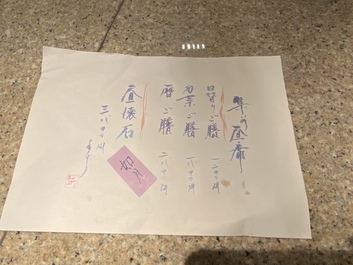 隼の昼膳
日替りご膳 一二〇〇円
万葉ご膳 一八〇〇円
暦ご膳 二八〇〇円
如月
昼懐石
三八〇〇円